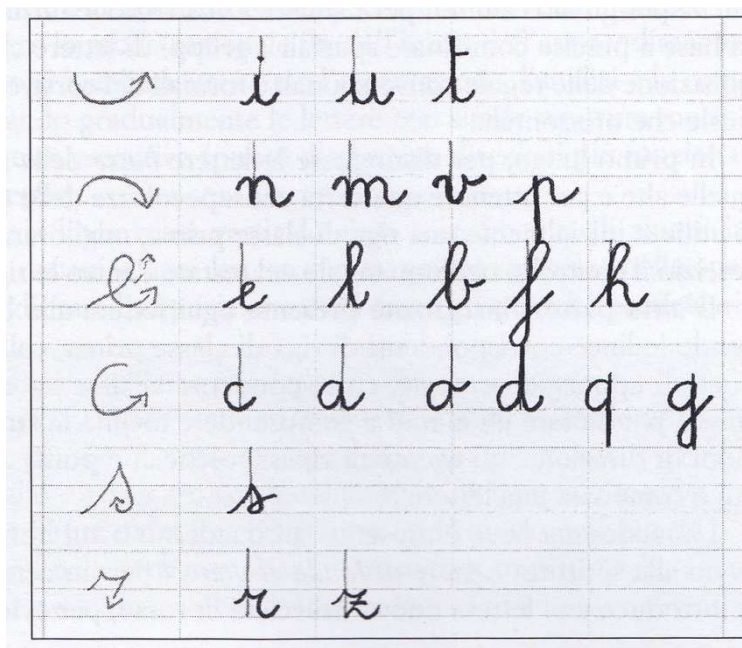 i u t
n m v p
e l b f h
c a o d q g
s
r z